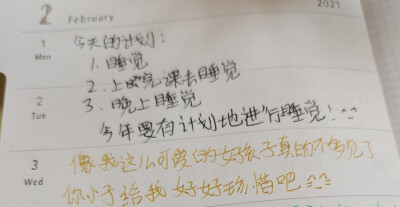 2 February 2021
1 今天的计划:
Mon 1. 睡觉
2. 上完课去睡觉
2 3. 晚上睡觉
Tue 今年要有计划地进行睡觉! ^^
3 像我这么可爱的好孩子真的不多见了
Wed 你小子给我好好珍惜吧